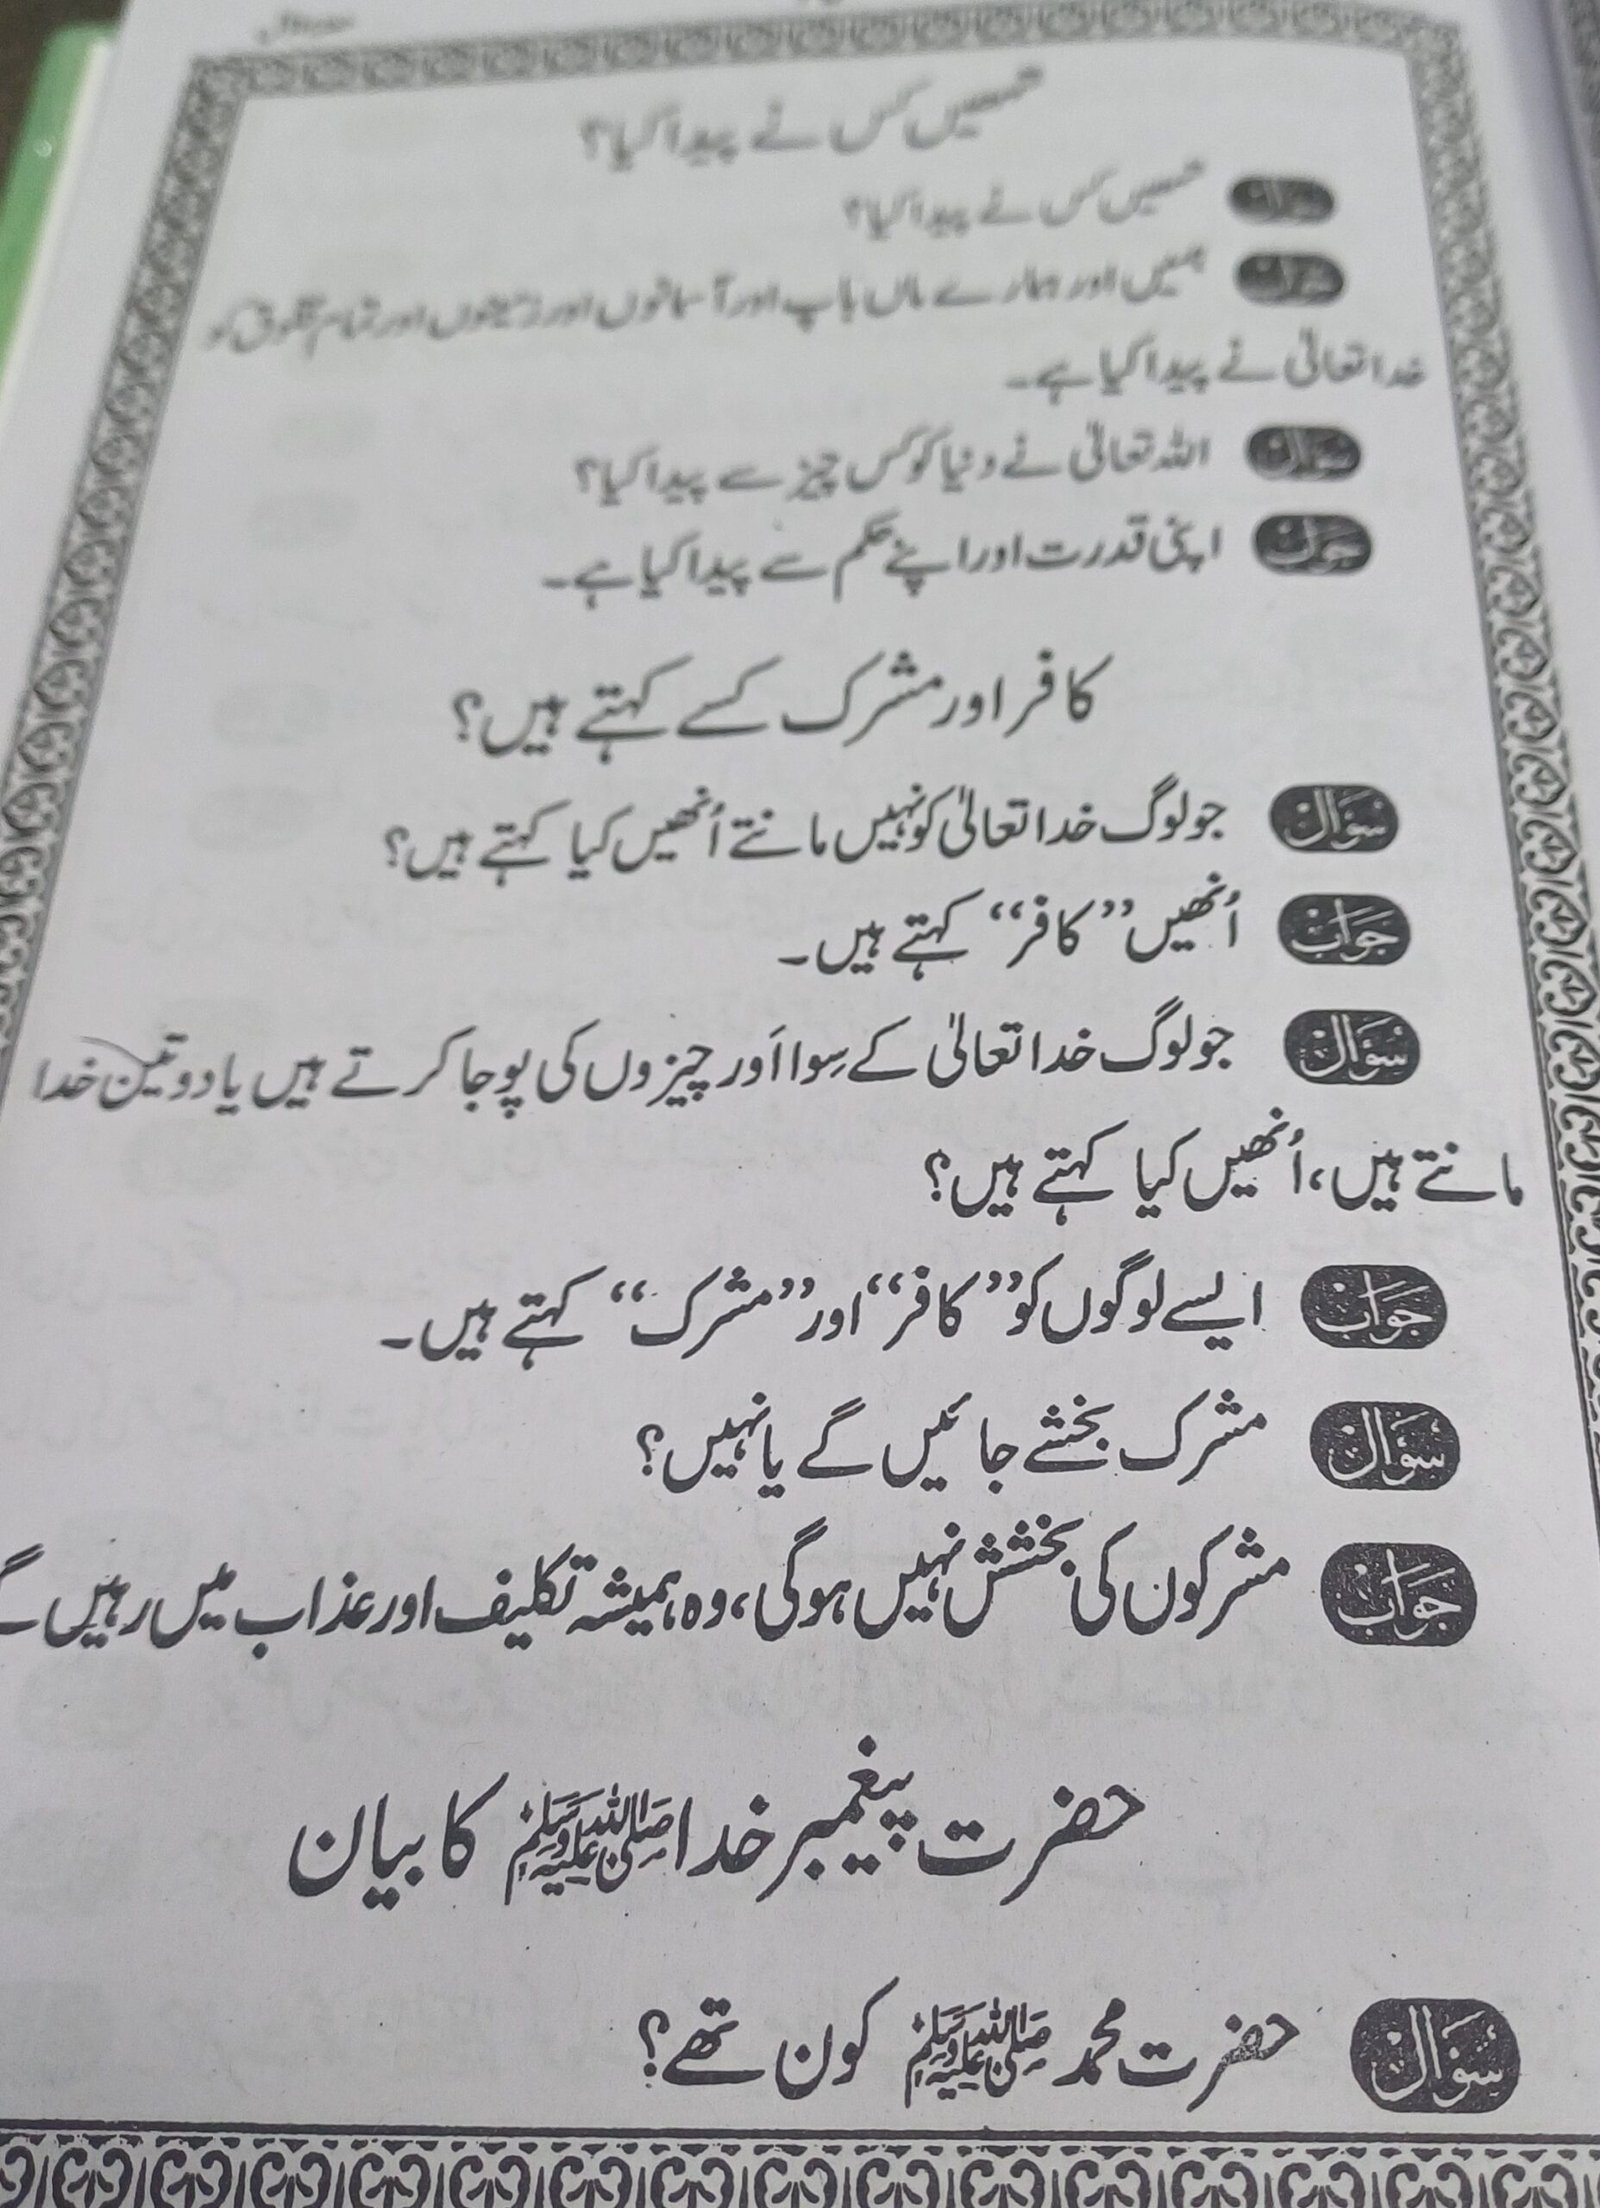 تمھیں کس نے پیدا کیا؟
سوال تمھیں کس نے پیدا کیا؟
جواب ہمیں اور ہمارے ماں باپ اور آسمانوں اور زمینوں اور تمام مخلوق کو
خدا تعالیٰ نے پیدا کیا ہے۔
سوال اللہ تعالیٰ نے دنیا کو کس چیز سے پیدا کیا؟
جواب اپنی قدرت اور اپنے حکم سے پیدا کیا ہے۔
کافر اور مشرک کسے کہتے ہیں؟
سوال جو لوگ خدا تعالیٰ کو نہیں مانتے اُنھیں کیا کہتے ہیں؟
جواب اُنھیں ”کافر“ کہتے ہیں۔
سوال جو لوگ خدا تعالیٰ کے سِوا اَور چیزوں کی پوجا کرتے ہیں یا دو تین خدا
مانتے ہیں، اُنھیں کیا کہتے ہیں؟
جواب ایسے لوگوں کو ”کافر“ اور ”مشرک“ کہتے ہیں۔
سوال مشرک بخشے جائیں گے یا نہیں؟
جواب مشرکوں کی بخشش نہیں ہوگی، وہ ہمیشہ تکلیف اور عذاب میں رہیں گے
حضرت پیغمبر خدا صلی اللہ علیہ وسلم کا بیان
سوال حضرت محمد صلی اللہ علیہ وسلم کون تھے؟